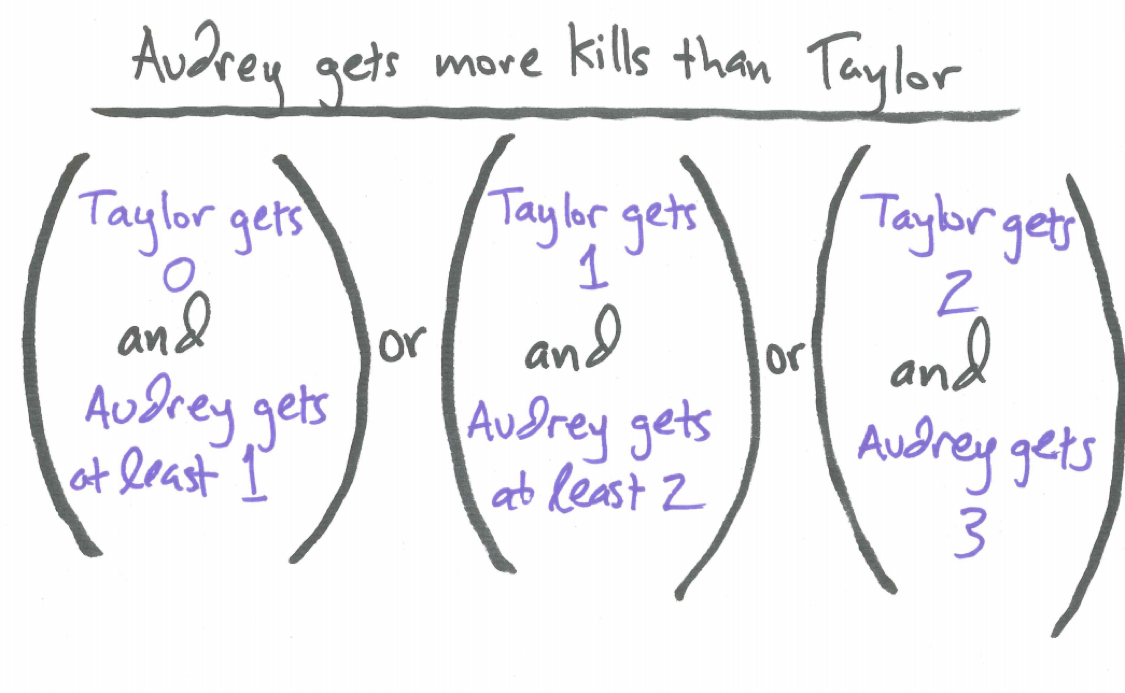 Audrey gets more kills than Taylor
Taylor gets
0
and
Audrey gets
at least 1
or
Taylor gets
1
and
Audrey gets
at least 2
or
Taylor gets
2
and
Audrey gets
3